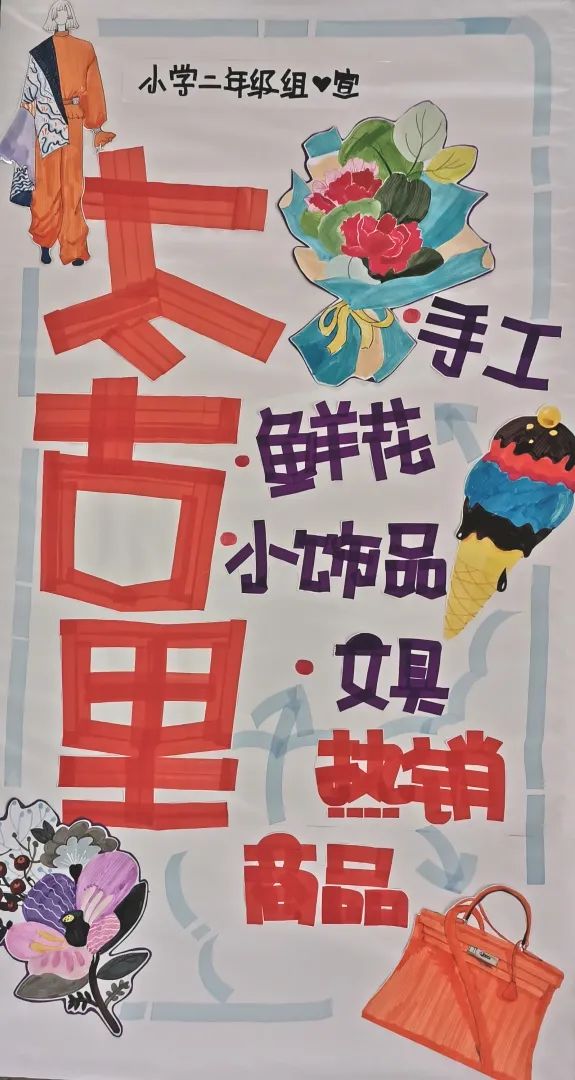 小学二年级组♥宣
太古里
手工
鲜花
小饰品
文具
热销
商品